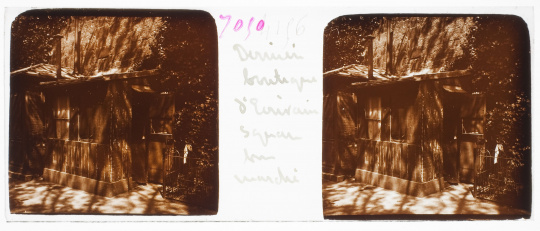 7050 156
Dernière
boutique
d'Ecrivain
Square
bon
marché